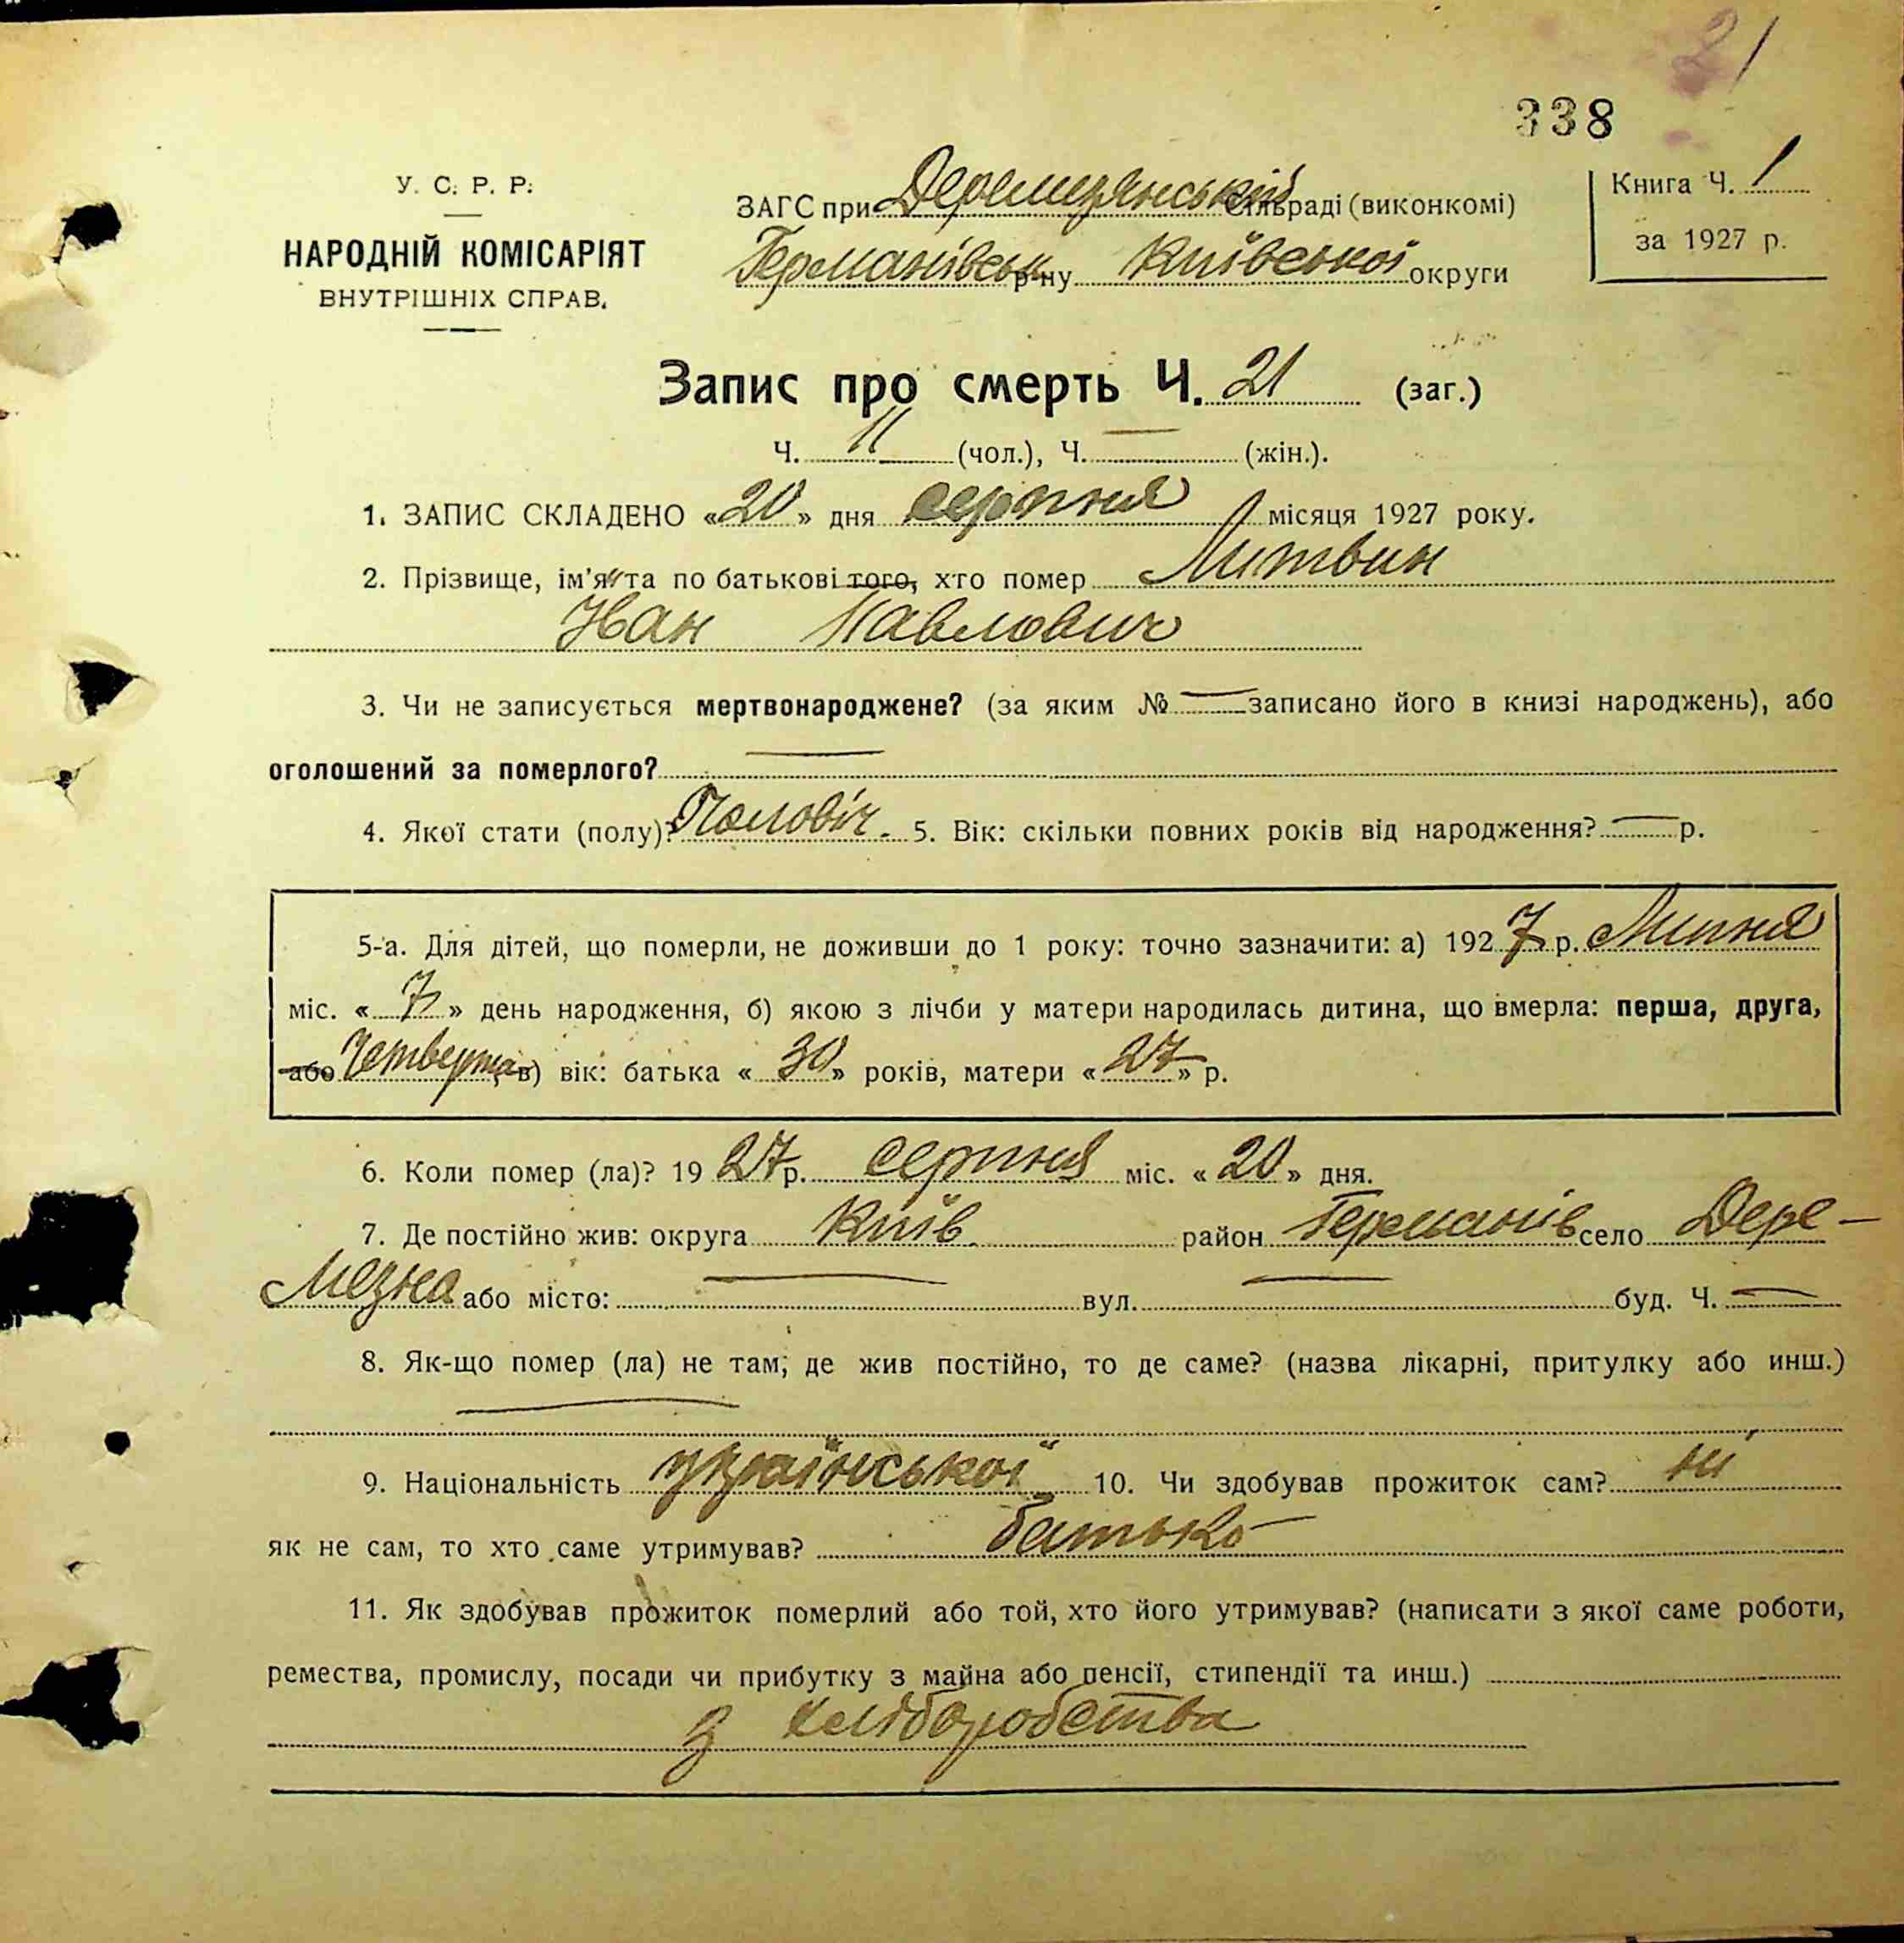 21
338
У. С. Р. Р.
НАРОДНІЙ КОМІСАРІЯТ
ВНУТРІШНІХ СПРАВ.
ЗАГС при Деремезянській сільраді (виконкомі)
Германівськ р-ну Київської округи
Книга Ч. 1
за 1927 р.
Запис про смерть Ч. 21 (заг.)
Ч. 11 (чол.), Ч. — (жін.).
1. ЗАПИС СКЛАДЕНО «20» дня серпня місяця 1927 року.
2. Прізвище, ім'я та по батькові того, хто помер Литвин
Іван Павлович
3. Чи не записується мертвонароджене? (за яким № — записано його в книзі народжень), або
оголошений за померлого? —
4. Якої стати (полу)? Чоловіч. 5. Вік: скільки повних років від народження? — р.
5-а. Для дітей, що померли, не доживши до 1 року: точно зазначити: а) 1927 р. Липня
міс. «7» день народження, б) якою з лічби у матери народилась дитина, що вмерла: перша, друга,
або Четверта в) вік: батька «30» років, матери «27» р.
6. Коли помер (ла)? 1927 р. серпня міс. «20» дня.
7. Де постійно жив: округа Київ. район Германів село Дере-
мезна або місто: — вул. — буд. Ч. —
8. Як-що помер (ла) не там, де жив постійно, то де саме? (назва лікарні, притулку або инш.)
—
9. Національність української 10. Чи здобував прожиток сам? ні
як не сам, то хто саме утримував? батько
11. Як здобував прожиток померлий або той, хто його утримував? (написати з якої саме роботи,
ремества, промислу, посади чи прибутку з майна або пенсії, стипендії та инш.)
з хліборобства